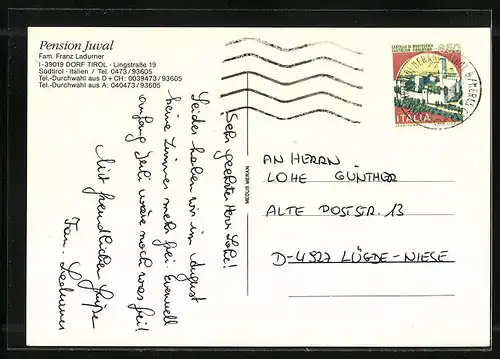 Pension Juval
Fam. Franz Ladurner
I-39019 DORF TIROL · Lingstraße 19
Südtirol · Italien / Tel. 0473/93605
Tel.-Durchwahl aus D + CH: 0039473/93605
Tel.-Durchwahl aus A: 040473/93605
Sehr geehrter Herr Lohe!
Leider haben wir im August
keine Zimmer mehr frei. Eventuell
anfang Juli wäre noch was frei!
Mit freundlichen Grüße
Fam. Ladurner
MEDUS MERAN
CASTELLO DI MONTECCHIO
CASTIGLION FIORENTINO
650
ITALIA
AN HERRN
LOHE GÜNTHER
ALTE POSTSTR. 13
D-4927 LÜGDE-NIESE